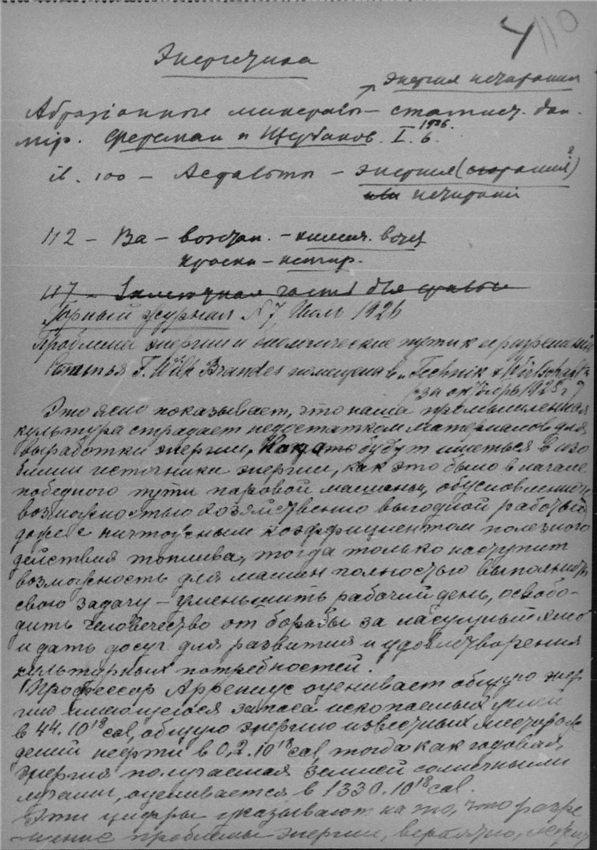 4 110
Энергетика
энергия истирания
Абразионные минералы – статист. дан.
мир. Ферсман и Щербаков. I. 6. 1926.
ib. 100 – Асфальты – энергия (сгорания?)
или истирани
112 – Ba – – химич. воец
краски – истир.
117 – часть для
Горный журнал №7 Июль 1926
Проблема энергии и химические пути к разрешени
Статья F. Wilh Brandes помещена в „Technik u Wirtschaft
за октябрь 1925 г.
Это ясно показывает, что наша промышленная
культура страдает недостатком материалов для
выработки энергии. Когда то будут иметься в изо
билии источники энергии, как это было в начале
победного пути паровой машины, обусловленного
возможностью хозяйственно выгодной работы
даже с ничтожным коэффициентом полезного
действия топлива, тогда только наступит
возможность для машин полностью выполнить
свою задачу – уменьшить рабочий день, освобо-
дить человечество от борьбы за насущный хлеб
и дать досуг для развития и удовлетворения
культурных потребностей.
Профессор Аррениус оценивает общую энер
гию имеющегося запаса ископаемых углей
в 44.10¹⁸ cal, общую энергию известных месторож
дений нефти в 0,2.10¹⁸ cal, тогда как годовая,
энергия получаемая землей солнечными
лучами, оценивается в 1330.10¹⁸ cal.
Эти цифры указывают на то, что разре
шение проблемы энергии, вероятно,